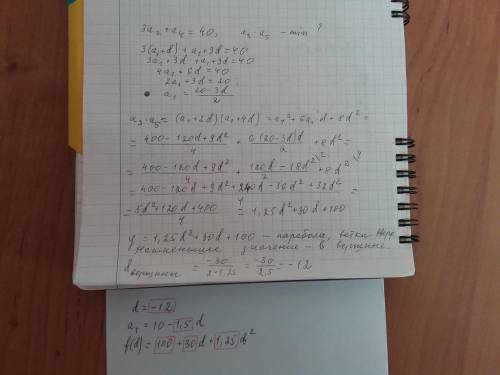 3a₂ + a₄ = 40, a₃·a₅ – min ?
3(a₁+d) + a₁+3d = 40
3a₁+3d + a₁+3d = 40
4a₁ + 6d = 40
2a₁ + 3d = 20
• a₁ = (20-3d)/2
a₃·a₅ = (a₁+2d)(a₁+4d) = a₁² + 6a₁d + 8d² =
= (400-120d+9d²)/4 + 6(20-3d)d/2 + 8d² =
= (400-120d+9d²)/4 + (120d-18d²)/2 + 8d² =
= (400-120d+9d²+240d-36d²+32d²)/4 =
= (5d²+120d+400)/4 = 1,25d²+30d+100
y = 1,25d²+30d+100 – парабола, ветки
Наименьшее значение – в вершине.
d вершины = -30/(2·1,25) = -30/2,5 = -12
d = -12
a₁ = 10 - 1,5 d
f(d) = 100 + 30 d + 1,25 d²